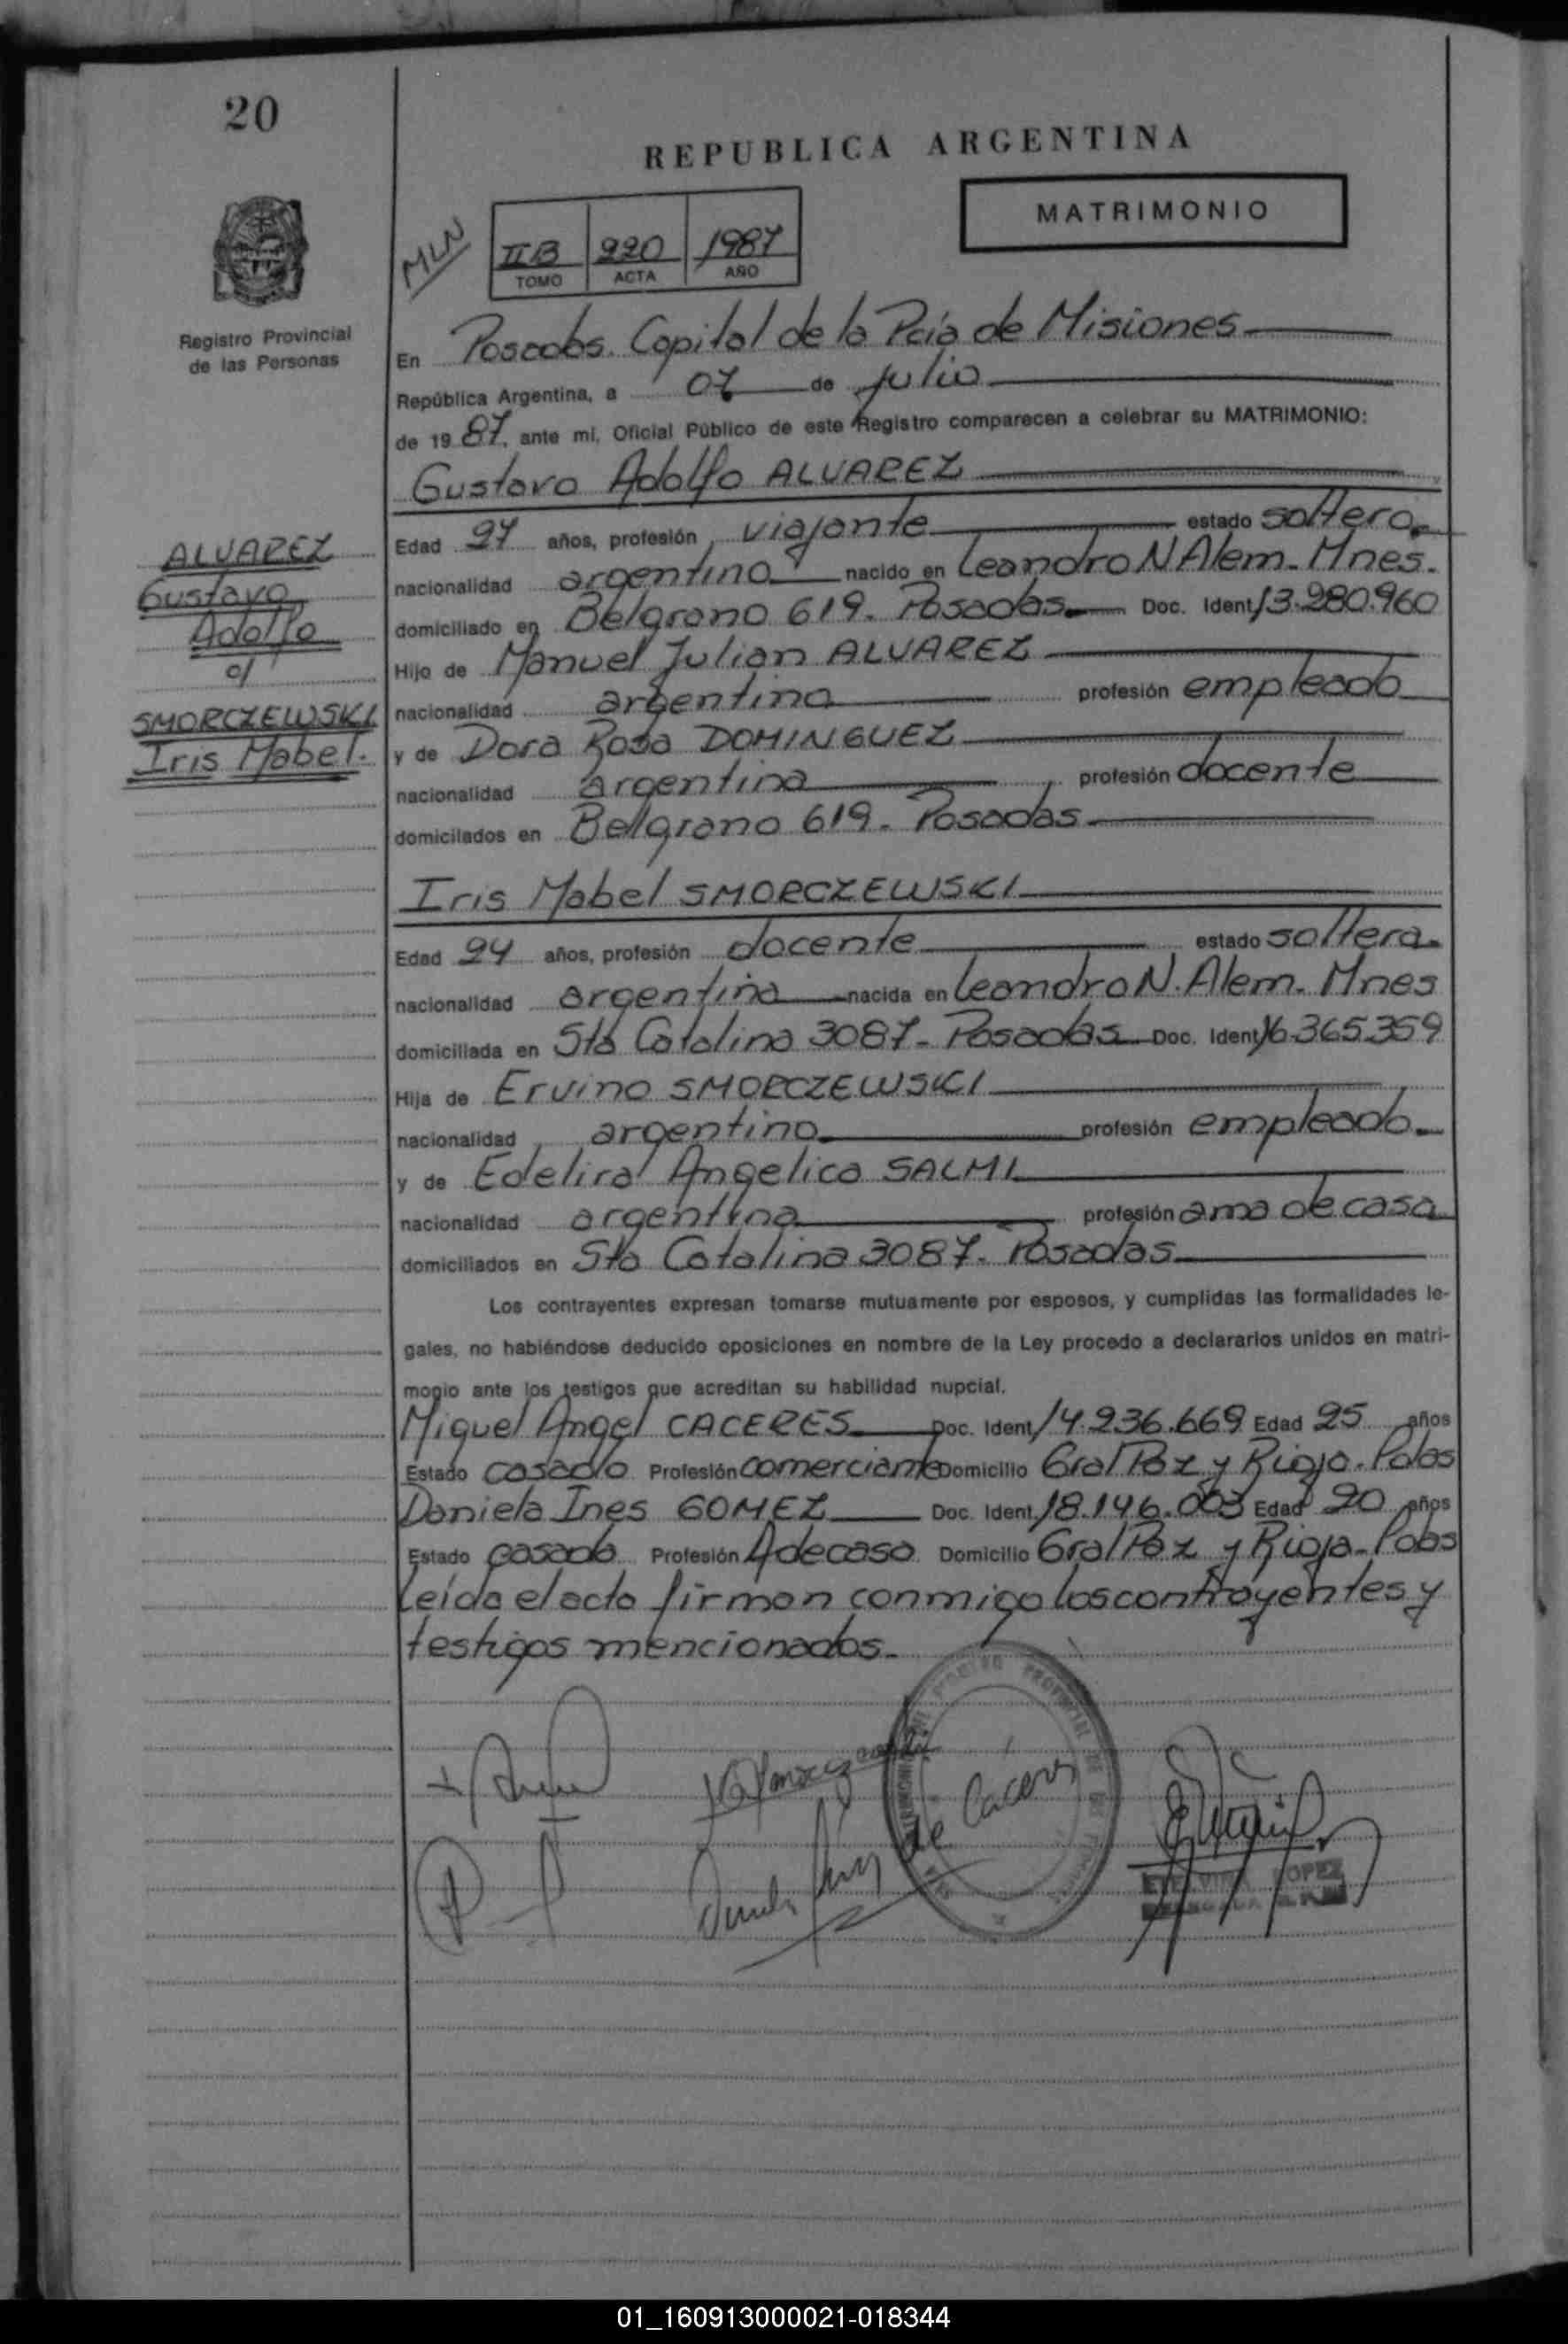 20
REPUBLICA ARGENTINA
MATRIMONIO
MLN
IIB 220 1987
TOMO ACTA AÑO
Registro Provincial
de las Personas
En Posadas. Capital de la Pcia de Misiones
República Argentina, a 07 de julio
de 1987. ante mi, Oficial Público de este Registro comparecen a celebrar su MATRIMONIO:
Gustavo Adolfo ALVAREZ
Edad 27 años, profesión viajante estado soltero.
nacionalidad argentino nacido en Leandro N Alem. Mnes.
domiciliado en Belgrano 619. Posadas. Doc. Ident 13.280.960
Hijo de Manuel Julian ALVAREZ
nacionalidad argentina profesión empleado
y de Dora Rosa DOMINGUEZ
nacionalidad argentina profesión docente
domicilados en Belgrano 619. Posadas
ALVAREZ
Gustavo
Adolfo
c/
SMORCZEWSKI
Iris Mabel.
Iris Mabel SMORCZEWSKI
Edad 24 años, profesión docente estado soltera.
nacionalidad argentina nacida en Leandro N. Alem. Mnes
domiciliada en Sta Catalina 3087. Posadas Doc. Ident 16.365.359
Hija de Ervino SMORCZEWSKI
nacionalidad argentino profesión empleado.
y de Edelira Angelica SALMI
nacionalidad argentina profesión ama de casa
domiciliados en Sta Catalina 3087. Posadas
Los contrayentes expresan tomarse mutuamente por esposos, y cumplidas las formalidades le-
gales, no habiéndose deducido oposiciones en nombre de la Ley procedo a declararlos unidos en matri-
monio ante los testigos que acreditan su habilidad nupcial.
Miguel Angel CACERES Doc. Ident 14.236.669 Edad 25 años
Estado casado Profesión comerciante Domicilio Gral Paz y Rioja. Pdas
Daniela Ines GOMEZ Doc. Ident. 18.146.003 Edad 20 años
Estado casada Profesión Adecasa Domicilio Gral Paz y Rioja. Pdas
Leída el acta firman conmigo los contrayentes y
testigos mencionados.
de Cáceres
LOPEZ
01_160913000021-018344